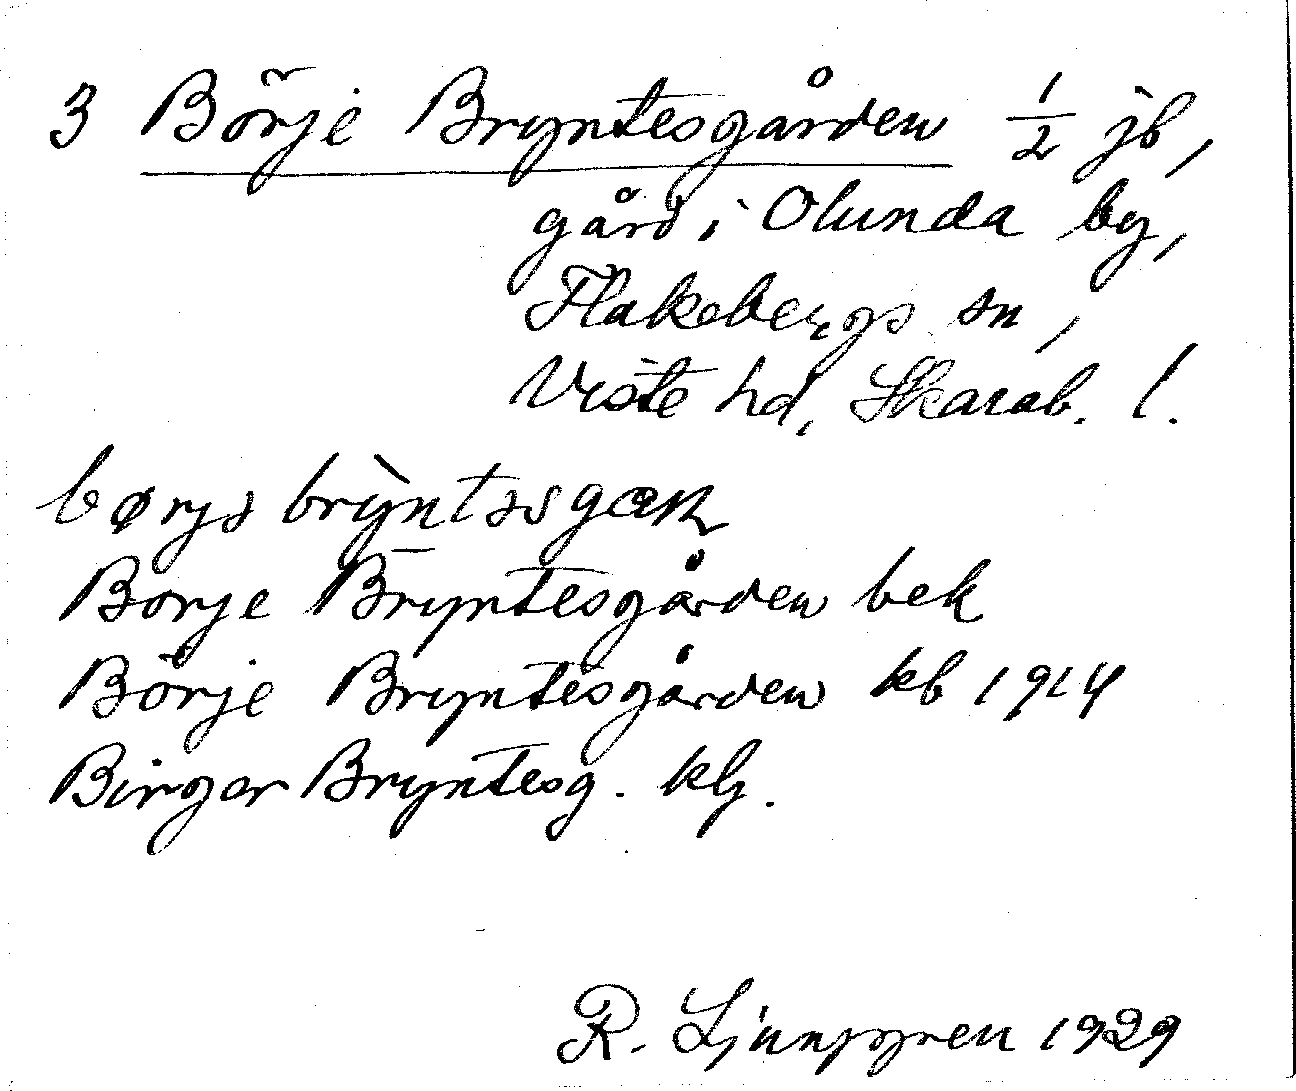 3 Börje Bryntesgården 1/2 jb,
gård i Olunda by,
Flakebergs sn,
Viste hd, Skarab. l.
børjə bry̠ntəsgɑɳ
Borje Bryntesgården bek
Börje Bryntesgården kb 1914
Birger Bryntesg. klj.
R. Ljunggren 1929